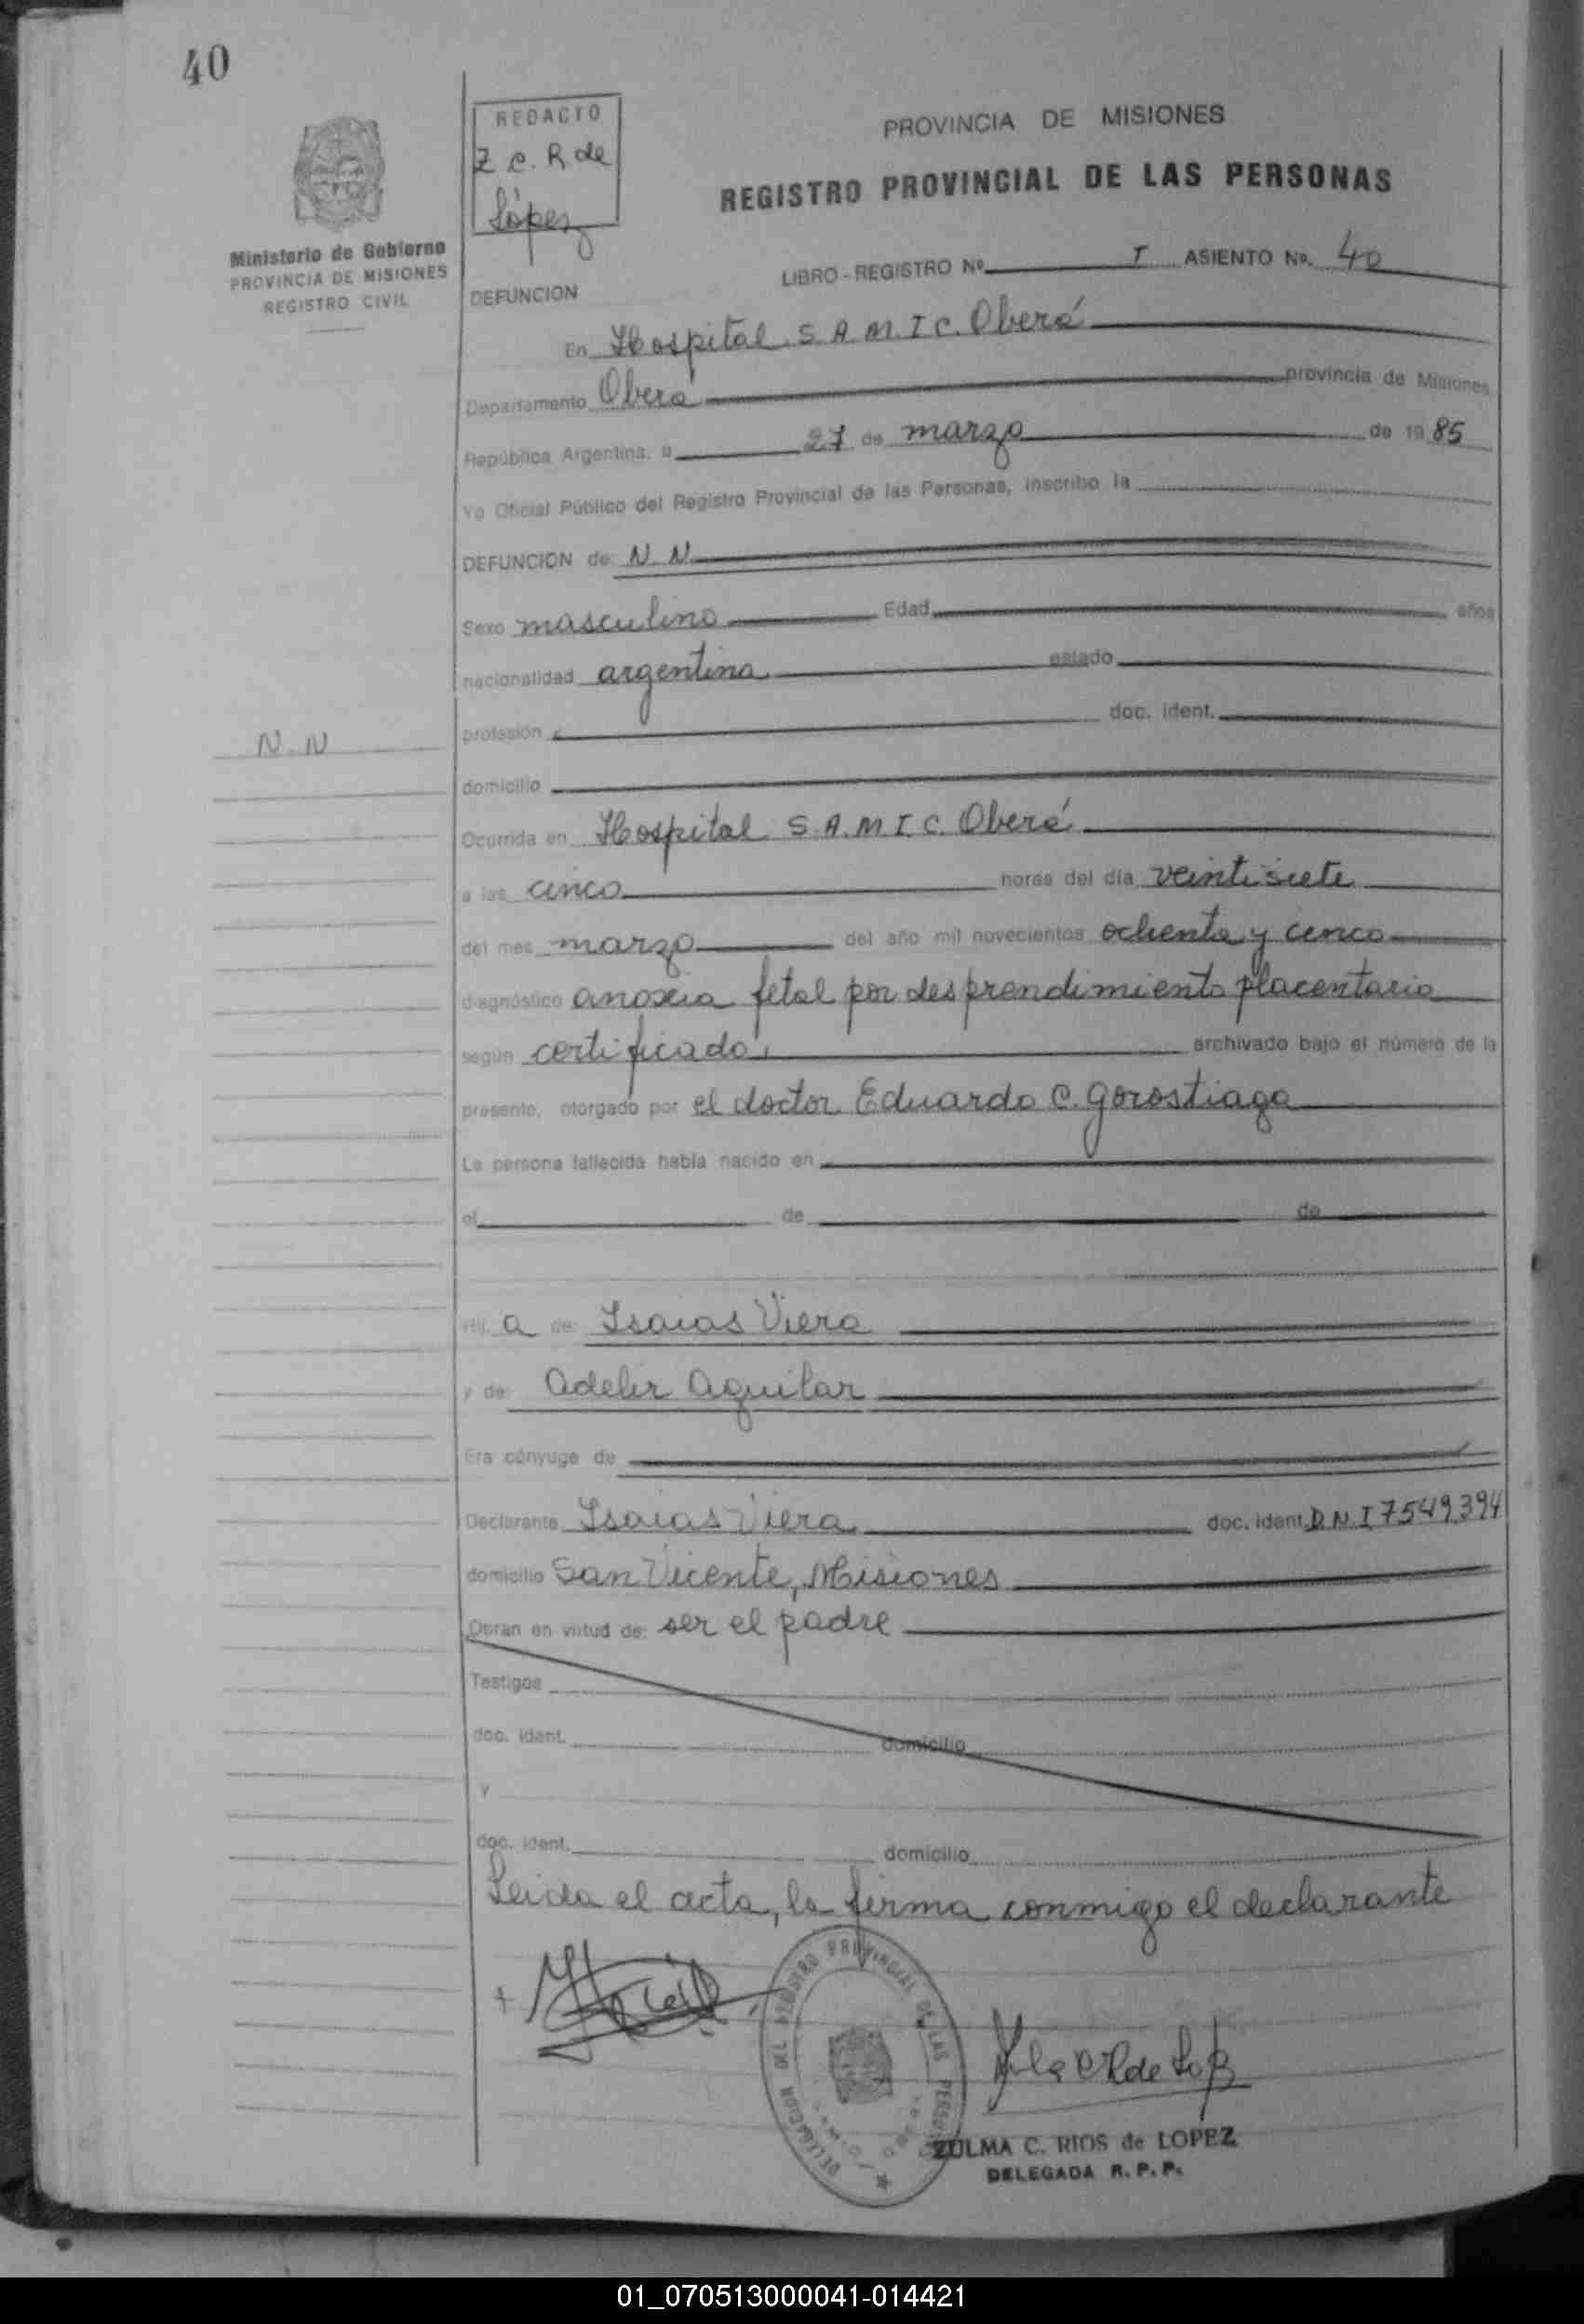 40
REDACTO
Z C. R de
López
Ministerio de Gobierno
PROVINCIA DE MISIONES
REGISTRO CIVIL
PROVINCIA DE MISIONES
REGISTRO PROVINCIAL DE LAS PERSONAS
LIBRO - REGISTRO Nº I ASIENTO Nº. 40
DEFUNCION
En Hospital S.A.M.I.C. Oberá
Departamento Oberá provincia de Misiones
República Argentina, a 27 de marzo de 1985
Yo Oficial Público del Registro Provincial de las Personas, inscribo la
DEFUNCION de: N. N
Sexo masculino Edad años
nacionalidad argentina estado
profesión doc. ident.
N. N
domicilio
Ocurrida en Hospital S.A.M.I.C. Oberá
a las cinco horas del día veintisiete
del mes marzo del año mil novecientos ochenta y cinco
diagnóstico anoxia fetal por desprendimiento placentario
según certificado, archivado bajo el número de la
presente, otorgado por el doctor Eduardo C. Gorostiaga
La persona fallecida había nacido en
el de de
Hij a de: Isaias Viera
y de: Adelir Aguilar
Era cónyuge de
Declarante Isaias Viera doc. ident. D.N.I 7549394
domicilio San Vicente, Misiones
Obran en viitud de: ser el padre
Testigos
doc. ident. domicilio
y
doc. ident. domicilio
Leida el acta, la firma conmigo el declarante
DELEGACION DEL REGISTRO PROVINCIAL DE LAS PERSONAS
ZULMA C. RIOS de LOPEZ
DELEGADA R. P. P.
01_070513000041-014421